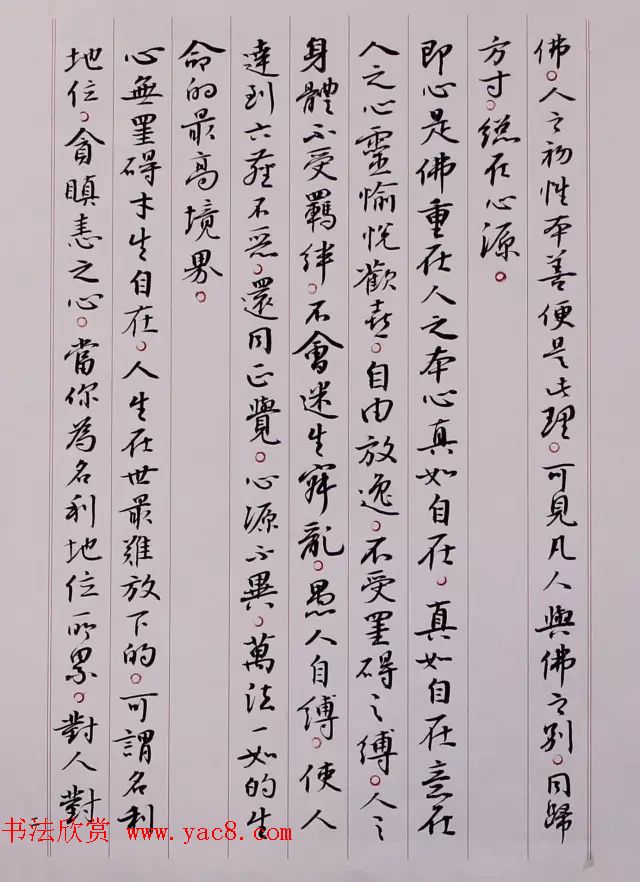 佛。人之初性本善便是此理。可見凡人與佛之别。同歸
方寸。總在心源。
即心是佛重在人之本心真如自在。真如自在意在
人之心靈愉悦歡喜。自由放逸。不受罣碍之縛。人之
身體不受羁絆。不會迷生寐亂。愚人自縛。使人
達到六蕴不恶。還同正覺。心源不異。萬法一如的生
命的最高境界。
心無罣碍才生自在。人生在世最難放下的。可謂名利
地位。貪瞋恚之心。當你為名利地位所累。對人對
书法欣赏 www.yac8.com